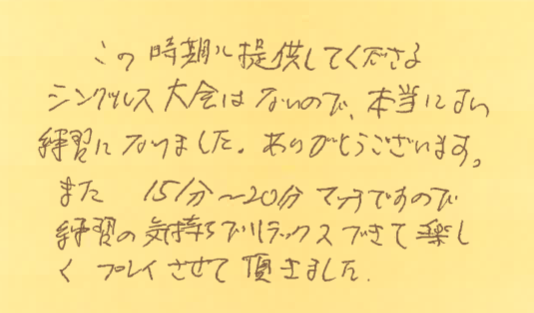 この時期に提供してくださる
シングルス大会はないので、本当によい
練習になりました。ありがとうございます。
また 15分〜20分マッチですので
練習の気持ちでリラックスできて楽し
く プレイさせて頂きました.